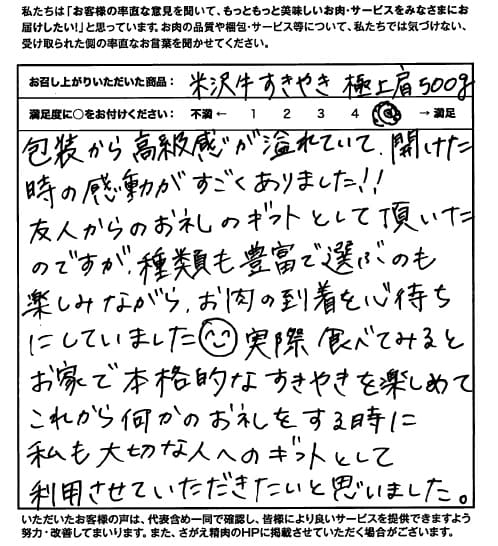 私たちは「お客様の率直な意見を聞いて、もっともっと美味しいお肉・サービスをみなさまにお
届けしたい!」と思っています。お肉の品質や梱包・サービス等について、私たちでは気づけない、
受け取られた側の率直なお言葉を聞かせてください。
お召し上がりいただいた商品: 米沢牛すきやき 極上肩500g
満足度に○をお付けください: 不満 ← 1 2 3 4 5 → 満足
包装から高級感が溢れていて、開けた
時の感動がすごくありました!!
友人からのお礼のギフトとして頂いた
のですが、種類も豊富で選ぶのも
楽しみながら、お肉の到着を心待ち
にしていました 実際食べてみると
お家で本格的なすきやきを楽しめて
これから何かのお礼をする時に
私も大切な人へのギフトとして
利用させていただきたいと思いました。
いただいたお客様の声は、代表含め一同で確認し、皆様により良いサービスを提供できますよう
努力・改善してまいります。また、さがえ精肉のHPに掲載させていただく場合がございます。